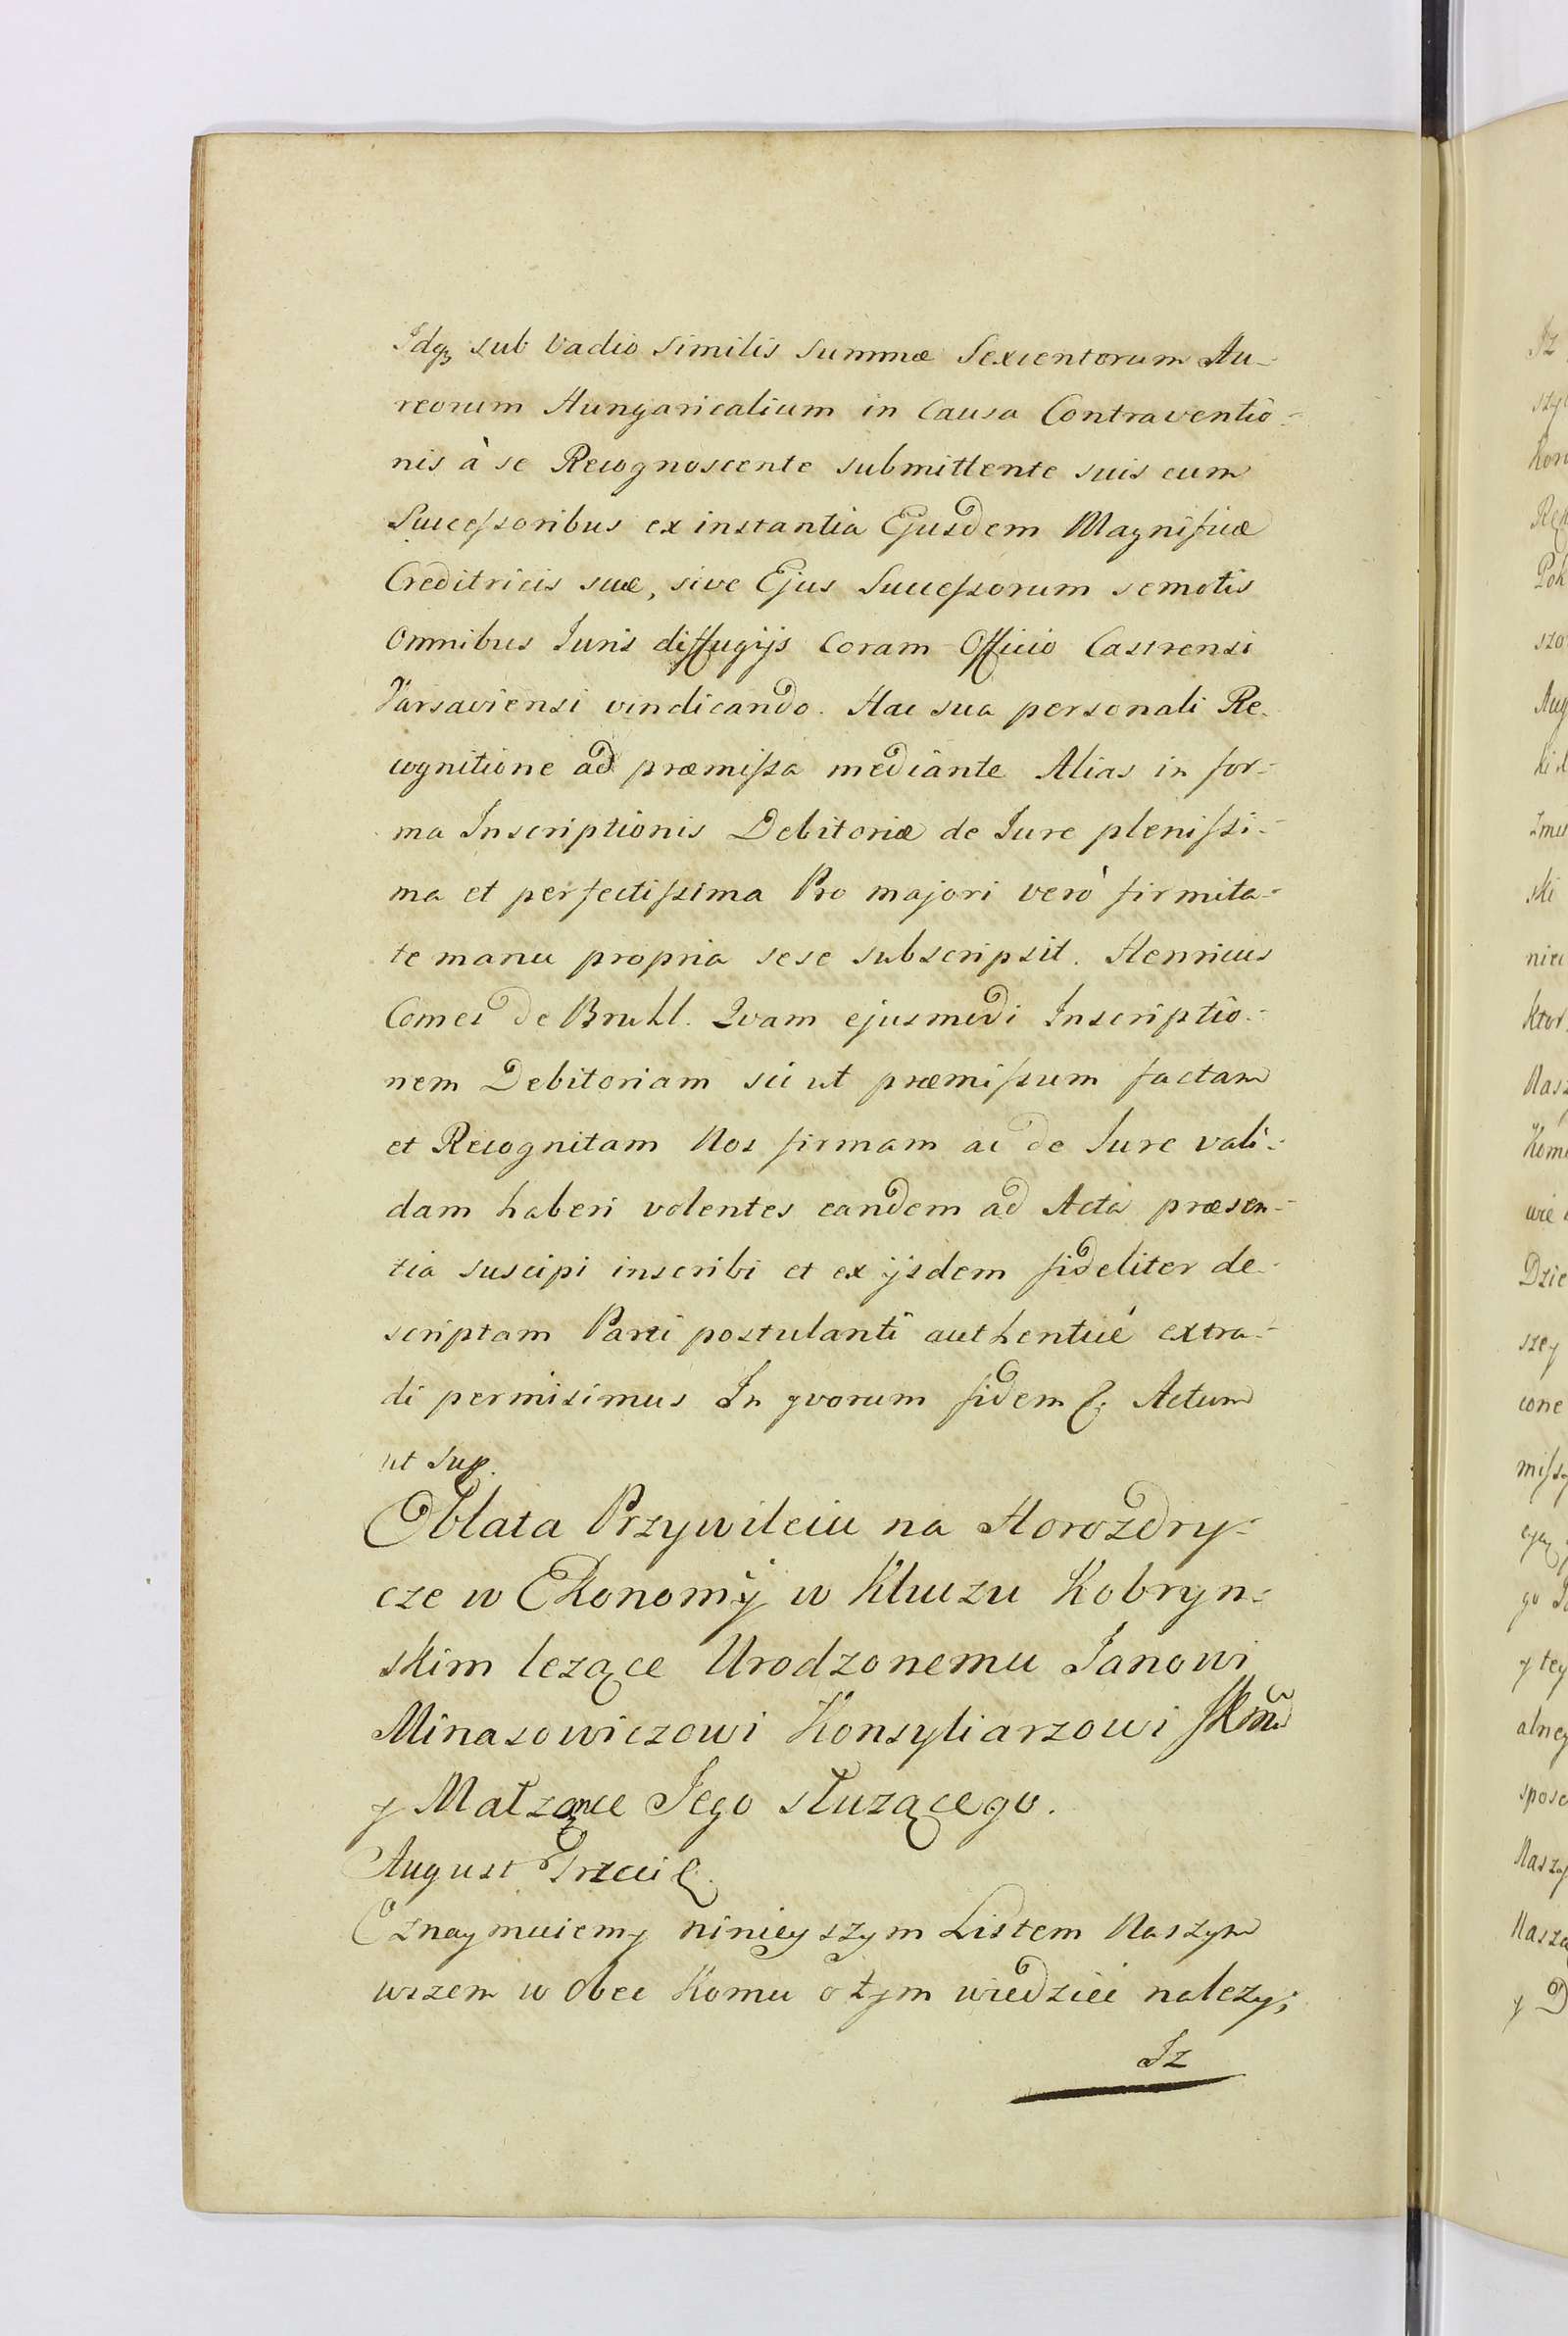 Idq; sub Vadio similis summæ Sexcentorum Au-
reorum Hungaricalium in Causa Contraventio-
nis à se Recognoscente submittente suis cum
Successoribus ex instantia Ejusdem Magnificæ
Creditricis suæ, sive Ejus Successorum semotis
Omnibus Iuris diffugijs Coram Officio Castrensi
Varsaviensi vindicando. Hac sua personali Re-
cognitione ad præmissa mediante Alias in for-
ma Inscriptionis Debitoriæ de Iure plenissi-
ma et perfectissima Pro majori verò firmita-
te manu propria sese subscripsit. Henricus
Comes de Bruhl. Qvam ejusmodi Inscriptio-
nem Debitoriam sic ut præmissum factam
et Recognitam Nos firmam ac de Iure vali-
dam haberi volentes eandem ad Acta præsen-
tia suscipi inscribi et ex ijsdem fideliter de-
scriptam Parti postulanti authenticè extra-
di permisimus In qvorum fidem &. Actum
ut sup.
Oblata Przywileiu na Horozdry-
cze w Ekonomij w Kluczu Kobryn-
skim lezące Urodzonemu Janowi
Minasowiczowi Konsyliarzowi
y Małzonce Jego słuzącego.
August Trzeci &.
Oznaymuiemy ninieyszym Listem Naszym
wszem w obec Komu o tym wiedziec nalezy;
Iz